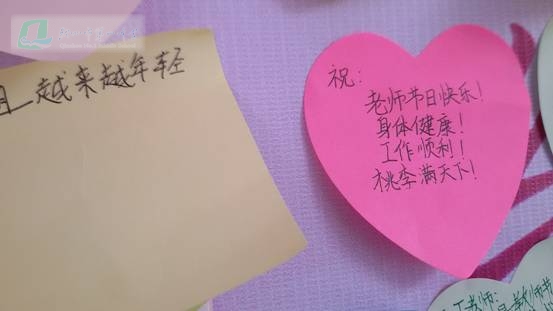 越来越年轻
祝：
老师节日快乐！
身体健康！
工作顺利！
桃李满天下！
老师：